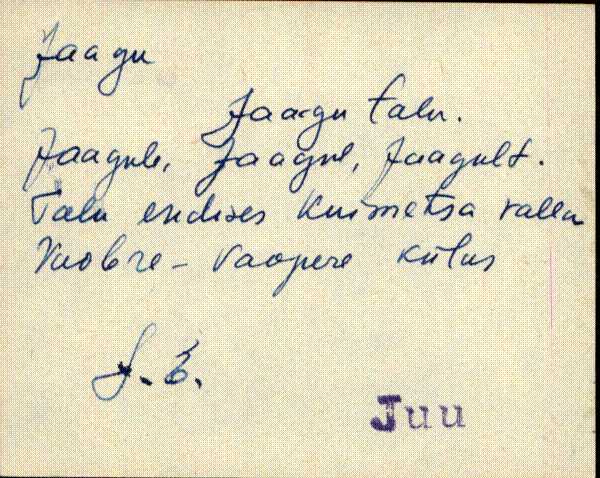 Jaagu
Jaagu talu.
Jaagule, Jaagul, Jaagult.
Talu endises Kuimetsa vallas
Vaopere külas
J. E.
Juu